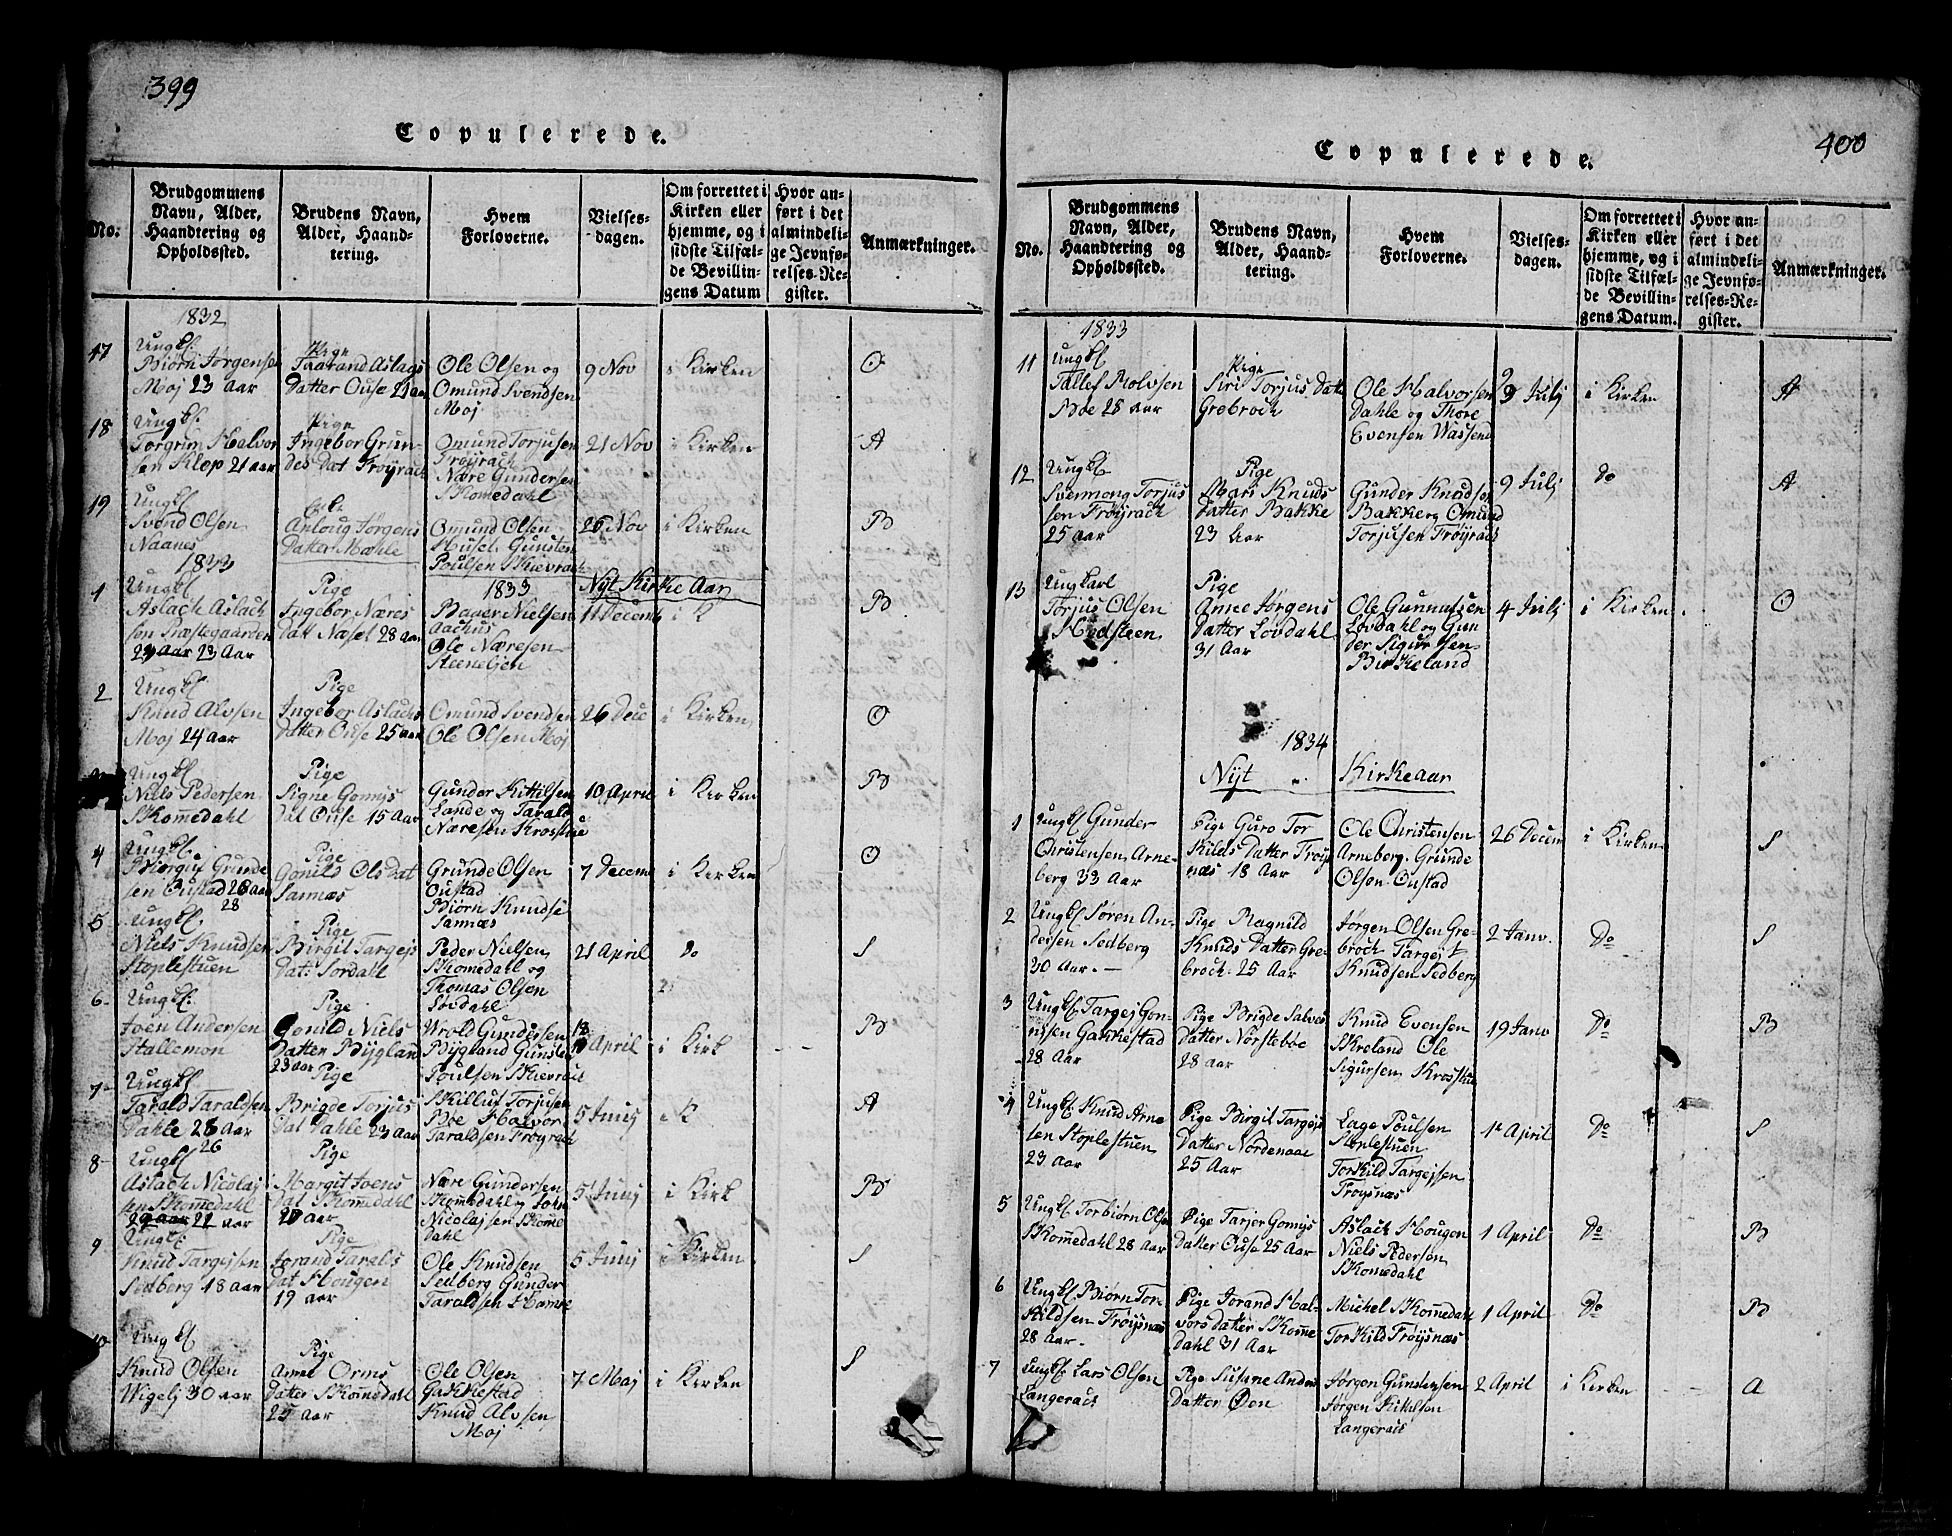 399
Copulerede.
No:
Brudgommens
Navn, Alder,
Haandtering og
Opholdssted.
Brudens Navn,
Alder, Haand-
tering.
Hvem
Forloverne.
Vielses-
dagen.
Om forrettet i
Kirken eller
hjemme, og i
sidste Tilfæl-
de Bevillin-
gens Datum
Hvor an-
ført i det
almindeli-
ge Jevnfø-
relses-Re-
gister.
Anmærkninger.
1832
17
Ungkl.
Biørn Jørgensen
Moj 23 aar
Pige
Taarand Aslags
Datter Ouse 21 aar
Ole Olsen og
Omund Svendsen
Moj
9 Nov
i Kirken
O
18
Ungkl.
Torgrim Halvor
sen Klep 21 aar
Pige
Ingebor Grun-
des Dat Frøyrach
Omund Torjusen
Frøyrach
Nære Gundersen
Skomedahl
21 Nov
i Kirken
A
19
Ungkl
Svend Olsen
Naanes
Anloug Jørgens
Datter Mæhle
Omund Olsen
Husel. Gunsten
Poulsen Skievrach
26 Nov
i Kirken
B
1833
1833
Nyt Kirke Aar
1
Ungkl
Aslach Aslach
sen Præstegaarden
23 Aar 23 Aar
Pige
Ingebor Næres
Datt Næset 28 aar
Bager Nielsen
Aachus
Ole Næresen
Steeneljen
11 Decemb
i K
B
2
Ungkl
Knud Alvsen
Moj 24 aar
Pige
Ingebor Aslachs
Datter Ouse 25 aar
Omund Svendsen
Ole Olsen Moj
26 Dec
i Kirken
O
Ungkl
Niels Pedersen
Skomedahl
Pige
Signe Gomijs
Dat Ouse 15 Aar
Gunder Kittilsen
Lande og Tarald
Næresen Krostue
10 April
i Kirken
B
4
Ungkl.
Biørguf Grunde
sen Oustad 28 aar
28
Pige
Gonils Ols Dat
Sannæs
Grunde Olsen
Oustad
Biørn Knudse
Sannæs
7 Decem
i Kirken
O
5
Ungkl
Niels Knudsen
Stoplestuen
Pige
Birgit Targejs
Dat: Sordahl
Peder Nielsen
Skomedahl og
Thomas Olsen
Lovdahl
21 April
Do
S
6
Ungkl:
Joen Andersen
Hallemon
Pige
Gonild Niels
Datter Bygland
23 aar
Wrold Gundersen
Bygland Gunsten
Poulsen Skievrach
18 April
i Kirk
B
7
Ungkl
Tarald Taraldsen
Dahle 28 Aar
26
Pige
Brigde Torjus
Dat Dahle 23 Aar
Skilluf Torjusen
Bøe Halvor
Taraldsen Frøyrach
5 Junij
i K
A
8
Ungkl
Aslach Nicolaj
sen Skomedahl
29 aar 22 aar
Pige
Margit Joens
Dat Skomedahl
20 aar
Nære Gundersen
Skomedahl og John
Nicolajsen Skome
dahl
5 Junij
i Kirk
B
9
Ungkl:
Knud Targejsen
Sedberg 18 aar
Pige
Jorand Tarals
Dat Hougen
19 aar
Ole Knudsen
Sedberg Gunder
Taraldsen Hamre
5 Junij
i Kirken
S
10
Ungkl
Knud Olsen
Wigelj 30 aar
Pige
Anne Orms
Datter Skomedahl
25 aar
Ole Olsen
Gakkestad
Knud Alvsen
Moj
7 Maj
i Kirken
S
400
Copulerede.
No.
Brudgommens
Navn, Alder,
Haandtering og
Opholdssted.
Brudens Navn,
Alder, Haand-
tering.
Hvem
Forloverne.
Vielses-
dagen.
Om forrettet i
Kirken eller
hjemme, og i
sidste Tilfæl-
de Bevillin-
gens Datum.
Hvor an-
ført i det
almindeli-
ge Jevnfø-
relses-Re-
gister.
Anmærkninger.
1833
11
Ungkl
Tallef Rolvsen
Bøe 28 aar
Pige
Siri Torjus Datt
Grebroch
Ole Halvorsen
Dahle og Thore
Evensen Wassend
9 Julj
i Kirken
A
12
Ungkl
Svennong Torjus
sen Frøyrach
25 aar
Pige
Mari Knuds
Datter Bakke
23 Aar
Gunder Knudsen
Bakke og Omund
Torjusen Frøyrach
9 Julj
Do
A
13
Ungkarl
Torjus Olsen
Hodsteen
Pige
Anne Jørgens
Datter Lovdahl
31 Aar
Ole Gunnufsen
Lovdahl og Gun
der Sigursen
Birkeland
4 Julj
i Kirken
O
1834
Nyt Kirkeaar
1
Ungkl Gunder
Christensen Arne-
berg 33 Aar
Pige Guro Tor
Kilds Datter Frøy
næs 18 Aar
Ole Christensen
Arneberg. Grunde
Olsen Oustad
26 Decem
i Kirken
S
2
Ungkl Søren An-
dersen Sedberg
30 Aar. —
Pige Ragnild
Knuds Datter Gre-
broch. 25 Aar
Jørgen Olsen Gre-
broch Targejt
Knudsen Sedberg
2 Janv.
Do
S
3
Ungkl Targej Gon-
nijsen Gakkestad
28 Aar
Pige Brigde Salves
Datter Norstebøe
28 aar
Knud Evensen
Skreland Ole
Sigursen Krostue
19 Janv
Do
B
4
Ungkl: Knud Arne
sen Stoplestuen
23 Aar
Pige Birgit Targejs
Datter Nordenaae
25 Aar
Lage Poulsen
Stoplestuen
Torkild Targejsen
Frøysnæs
1 April
Do
S
5
Ungkl Torbiørn Olsen
Skomedahl 28 Aar
Pige Tarjer Gomijs
Datter Ouse 25 Aar
Aslach Hougen
Niels Pedersen
Skomedahl
1 April
Do
B
6
Ungkl Biørn Tor-
kildsen Frøysnæs
28 aar
Pige Jorand Hal-
vors datter Skome
dahl 31 Aar
Michel Skomedahl
Torkild Frøysnæs
1 April
Do
B
7
Ungkl Lars Olsen
Langerach
Pige Susane Anders
Datter Øen
Jørgen Gunstensen
Jørgen Kittelsen
Langerach
2 April
i Kirken
A